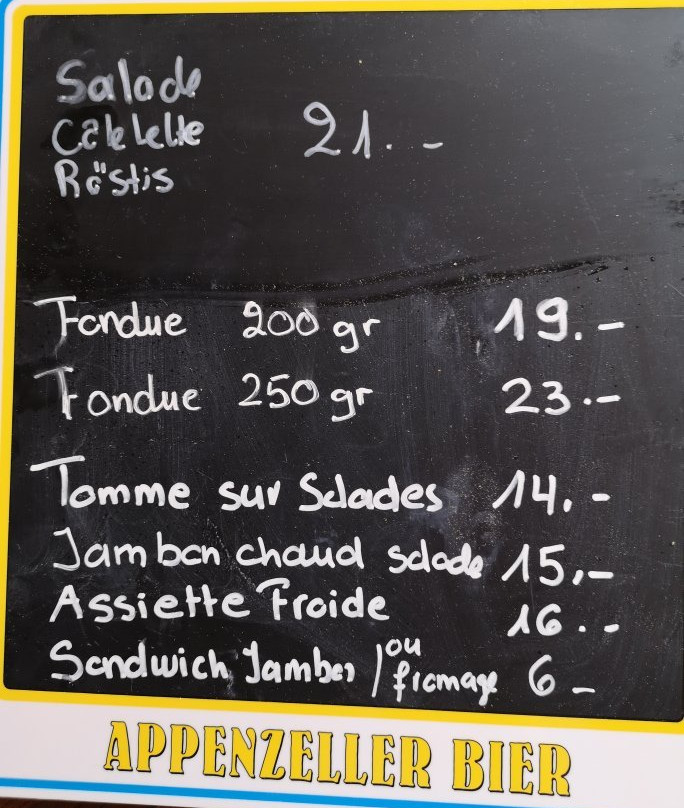 Salade
Côtelette 21.-
Röstis
Fondue 200 gr 19.-
Fondue 250 gr 23.-
Tomme sur Salades 14.-
Jambon chaud salade 15.-
Assiette Froide 16.-
Sandwich Jambon / ou fromage 6 -
APPENZELLER BIER